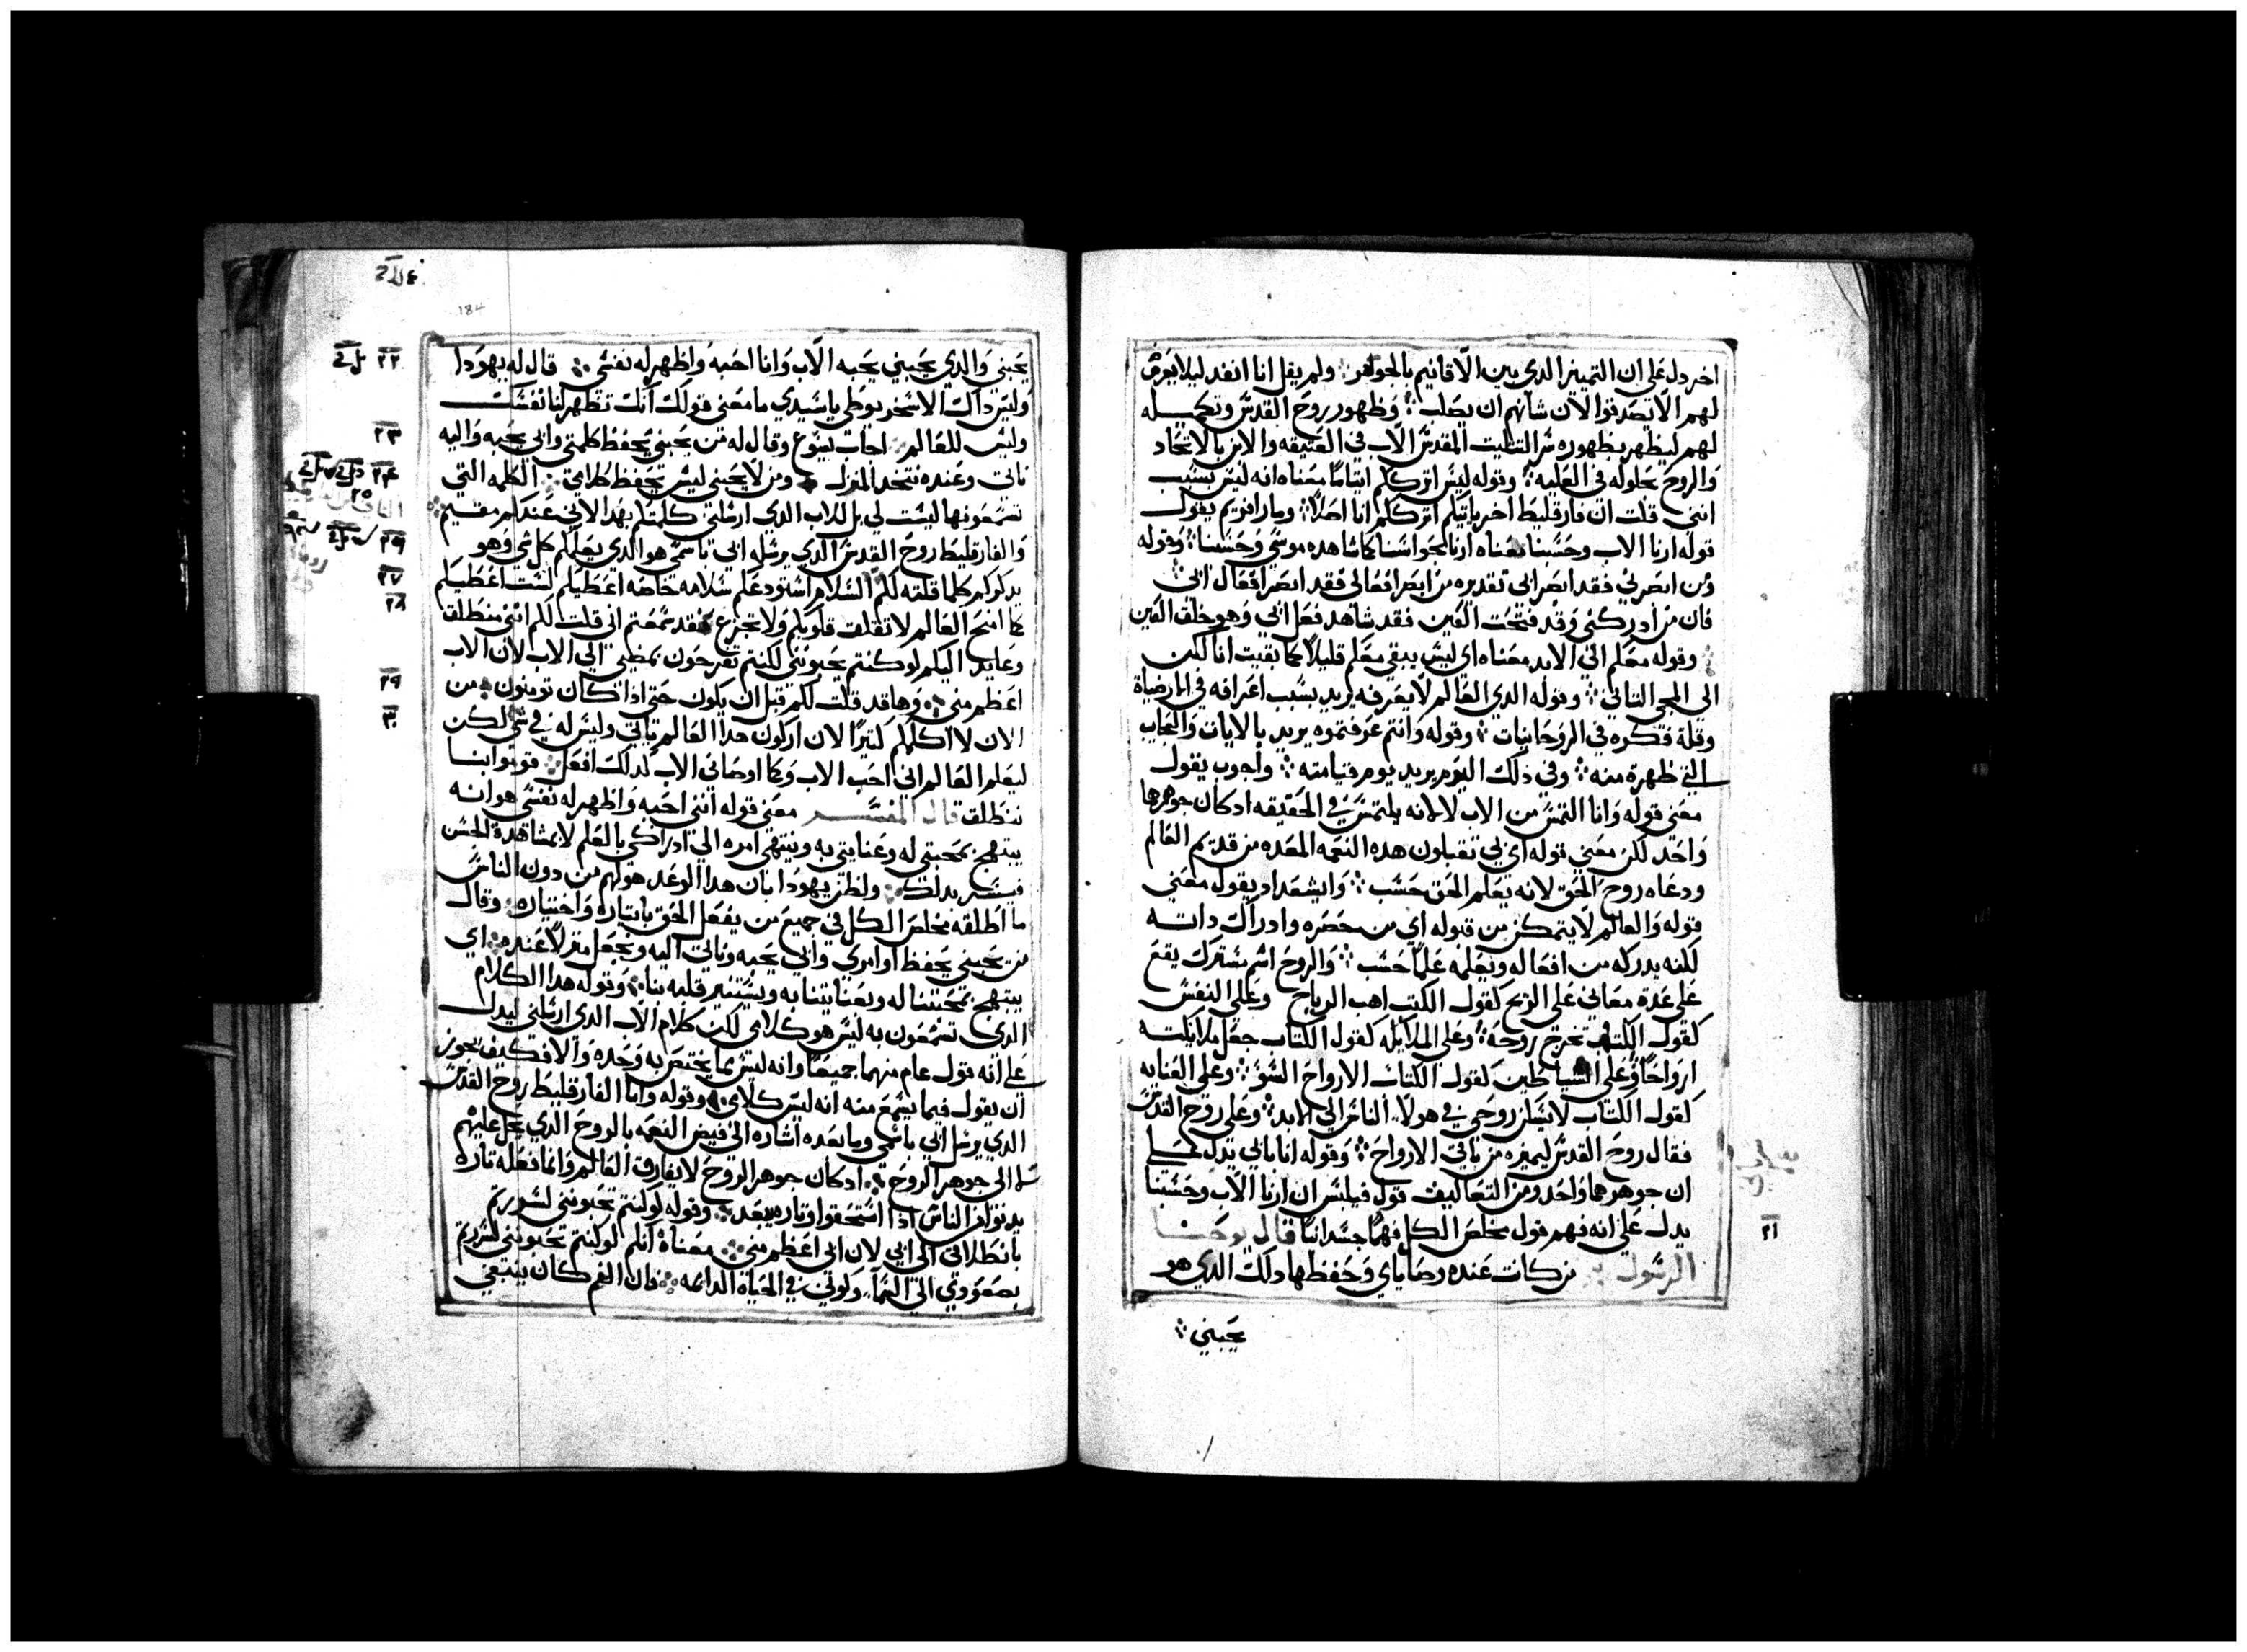 اخر دل على ان التمييز الدي بين الاقانيم بالجواهر ولم يقل انا انفد ليلا يعرض
لهم الا يصدقوا لان شانهم ان يصلب وظهور روح القدس وتكميله
لهم ليظهر بظهوره سر التتليت المقدس الاب في العتيقه والابن بالاتحاد
والروح بحلوله في العليه وقوله ليس اترككم ايتاما معناه انه ليس بسبب
انني قلت ان فارقليط اخر ياتيكم اترككم انا اصلا ومار افريم يقول
قوله ارنا الاب وحسبنا معناه ارنا لحواسنا كما شاهده موسى وحسبنا وقوله
من ابصرني فقد ابصر ابي تقديره من ابصر افعالي فقد ابصر افعال ابي
فان من ادركني وقد فتحت العين فقد شاهد فعل ابي وهو خلق العين
وقوله معكم الى الابد معناه اي ليس يبقى معكم قليلا كما بقيت انا لكن
الى المجي التاني وقوله الدي العالم لا يعرفه يريد بسبب اغراقه في الارضياة
وقلة فكره في الروحانيات وقوله وانتم عرفتموه يريد بالايات والعجايب
التي ظهرة منه وفي ذلك اليوم يريد يوم قيامته واجوب يقول
معنى قوله وانا التمس من الاب لا لانه يلتمس في الحقيقه ادكان جوهرها
واحد لكن معنى قوله اي بي تقبلون هده النعمه المعده من قديم العالم
ودعاه روح الحق لانه يعلم الحق حسب وايشعداد يقول معنى
قوله والعالم لا يتمكن من قبوله اي من حصره وادراك داته
لكنه يدركه من افعاله ويعلمه علما حسب والروح اسم مشترك يقع
على عدة معاني على الريح كقول الكتب اهب الرياح وعلى النفس
كقول الكتاب تخرج روحه وعلى الملايكه كقول الكتاب جعل ملايكته
ارواحا وعلى الشياطين كقول الكتاب الارواح السو وعلى العنايه
كقول الكتاب لا تسكن روحي في هولاء الناس الى الابد وعلى روح القدس
فقال روح القدس ليميزه من باقي الارواح وقوله انا بابي تدل على
ان جوهرهما واحد ومن التعاليق قول فيلبس ان ارنا الاب وحسبنا
يدل على انه فهم قول مخلص الكل فهما جسدانيا قال يوحنا
الرسول من كانت عنده وصاياي وحفظها دلك الدي هو
يحبني
٢١
184
يحبني والدي يحبني يحبه الاب وانا احبه واظهر له نفسي قال له يهودا
وليس داك الاسخريوطي يا سيدي ما معنى قولك انك تظهر لنا نفسك
وليس للعالم اجاب يسوع وقال له من يحبني يحفظ كلمتي وابي يحبه واليه
ناتي وعنده نتخد المنزل ومن لا يحبني ليس يحفظ كلامي الكلمه التي
تسمعونها ليست لي بل للاب الدي ارسلني كلمتكم بهدا لاني عندكم مقيم
والفارقليط روح القدس الدي يرسله ابي باسمي هو الدي يعلمكم كل شي وهو
يدكركم كلما قلته لكم السلام استودعكم سلامه خاصه اعطيكم لست اعطيكم
كما امنح العالم لا تقلق قلوبكم ولا تجزع فقد سمعتم اني قلت لكم انني منطلق
وعايد اليكم لو كنتم تحبونني لكنتم تفرحون بمضيي الى الاب لان الاب
اعظم مني وها قد قلت لكم قبل ان يكون حتى ادا كان تومنون من
الان لا اكلمكم كتيرا لان اركون هدا العالم ياتي وليس له في شي لكن
ليعلم العالم اني احب الاب وكما اوصاني الاب كدلك افعل قوموا بنا
ننطلق قال المفسر معنى قوله انني احبه واظهر له نفسي هو انه
يبتهج بمحبتي له وعنايتي به وينتهي امره الى ادراكي بالعلم لا بمشاهدة الحس
فيستر بدلك ولظن يهودا بان هدا الوعد هو لهم من دون الناس
ما اطلقه مخلص الكل في جميع من يفعل الحق بايتاره واختياره وقال
من يحبني يحفظ اوامري وابي يحبه وناتي اليه ونجعل منزلا عنده اي
يبتهج بمحبتنا له وبعنايتنا به ويستنير قلبه بنا وقوله هدا الكلام
الدي تسمعون به ليس هو كلامي لكن كلام الاب الدي ارسلني ليدل
على انه قول عام منهما جميعا وانه ليس مما يختص به وحده والا فكيف يجوز
ان يقول فيما يسمع منه انه ليس كلامي وقوله واما الفارقليط روح القدس
الدي يرسل ابي باسمي وما بعده اشاره الى فيض النعمه بالروح الدي يحل عليهم
لا الى جوهر الروح ادكان جوهر الروح لا يفارق العالم وانما نعله تاره
يدنوا من الناس ادا استحقوا وتاره يبعد وقوله لو كنتم تحبونني لسررتم
بانطلاقي الى ابي لان ابي اعظم مني معناه انكم لو كنتم تحبونني لسررتم
بصعودي الى السماء وكوني في الحياة الدايمه فان الغم كان ينبغي
٢٢
٢٣
٢٤
٢٥
٢٦
٢٧
٢٨
٢٩
٣٠